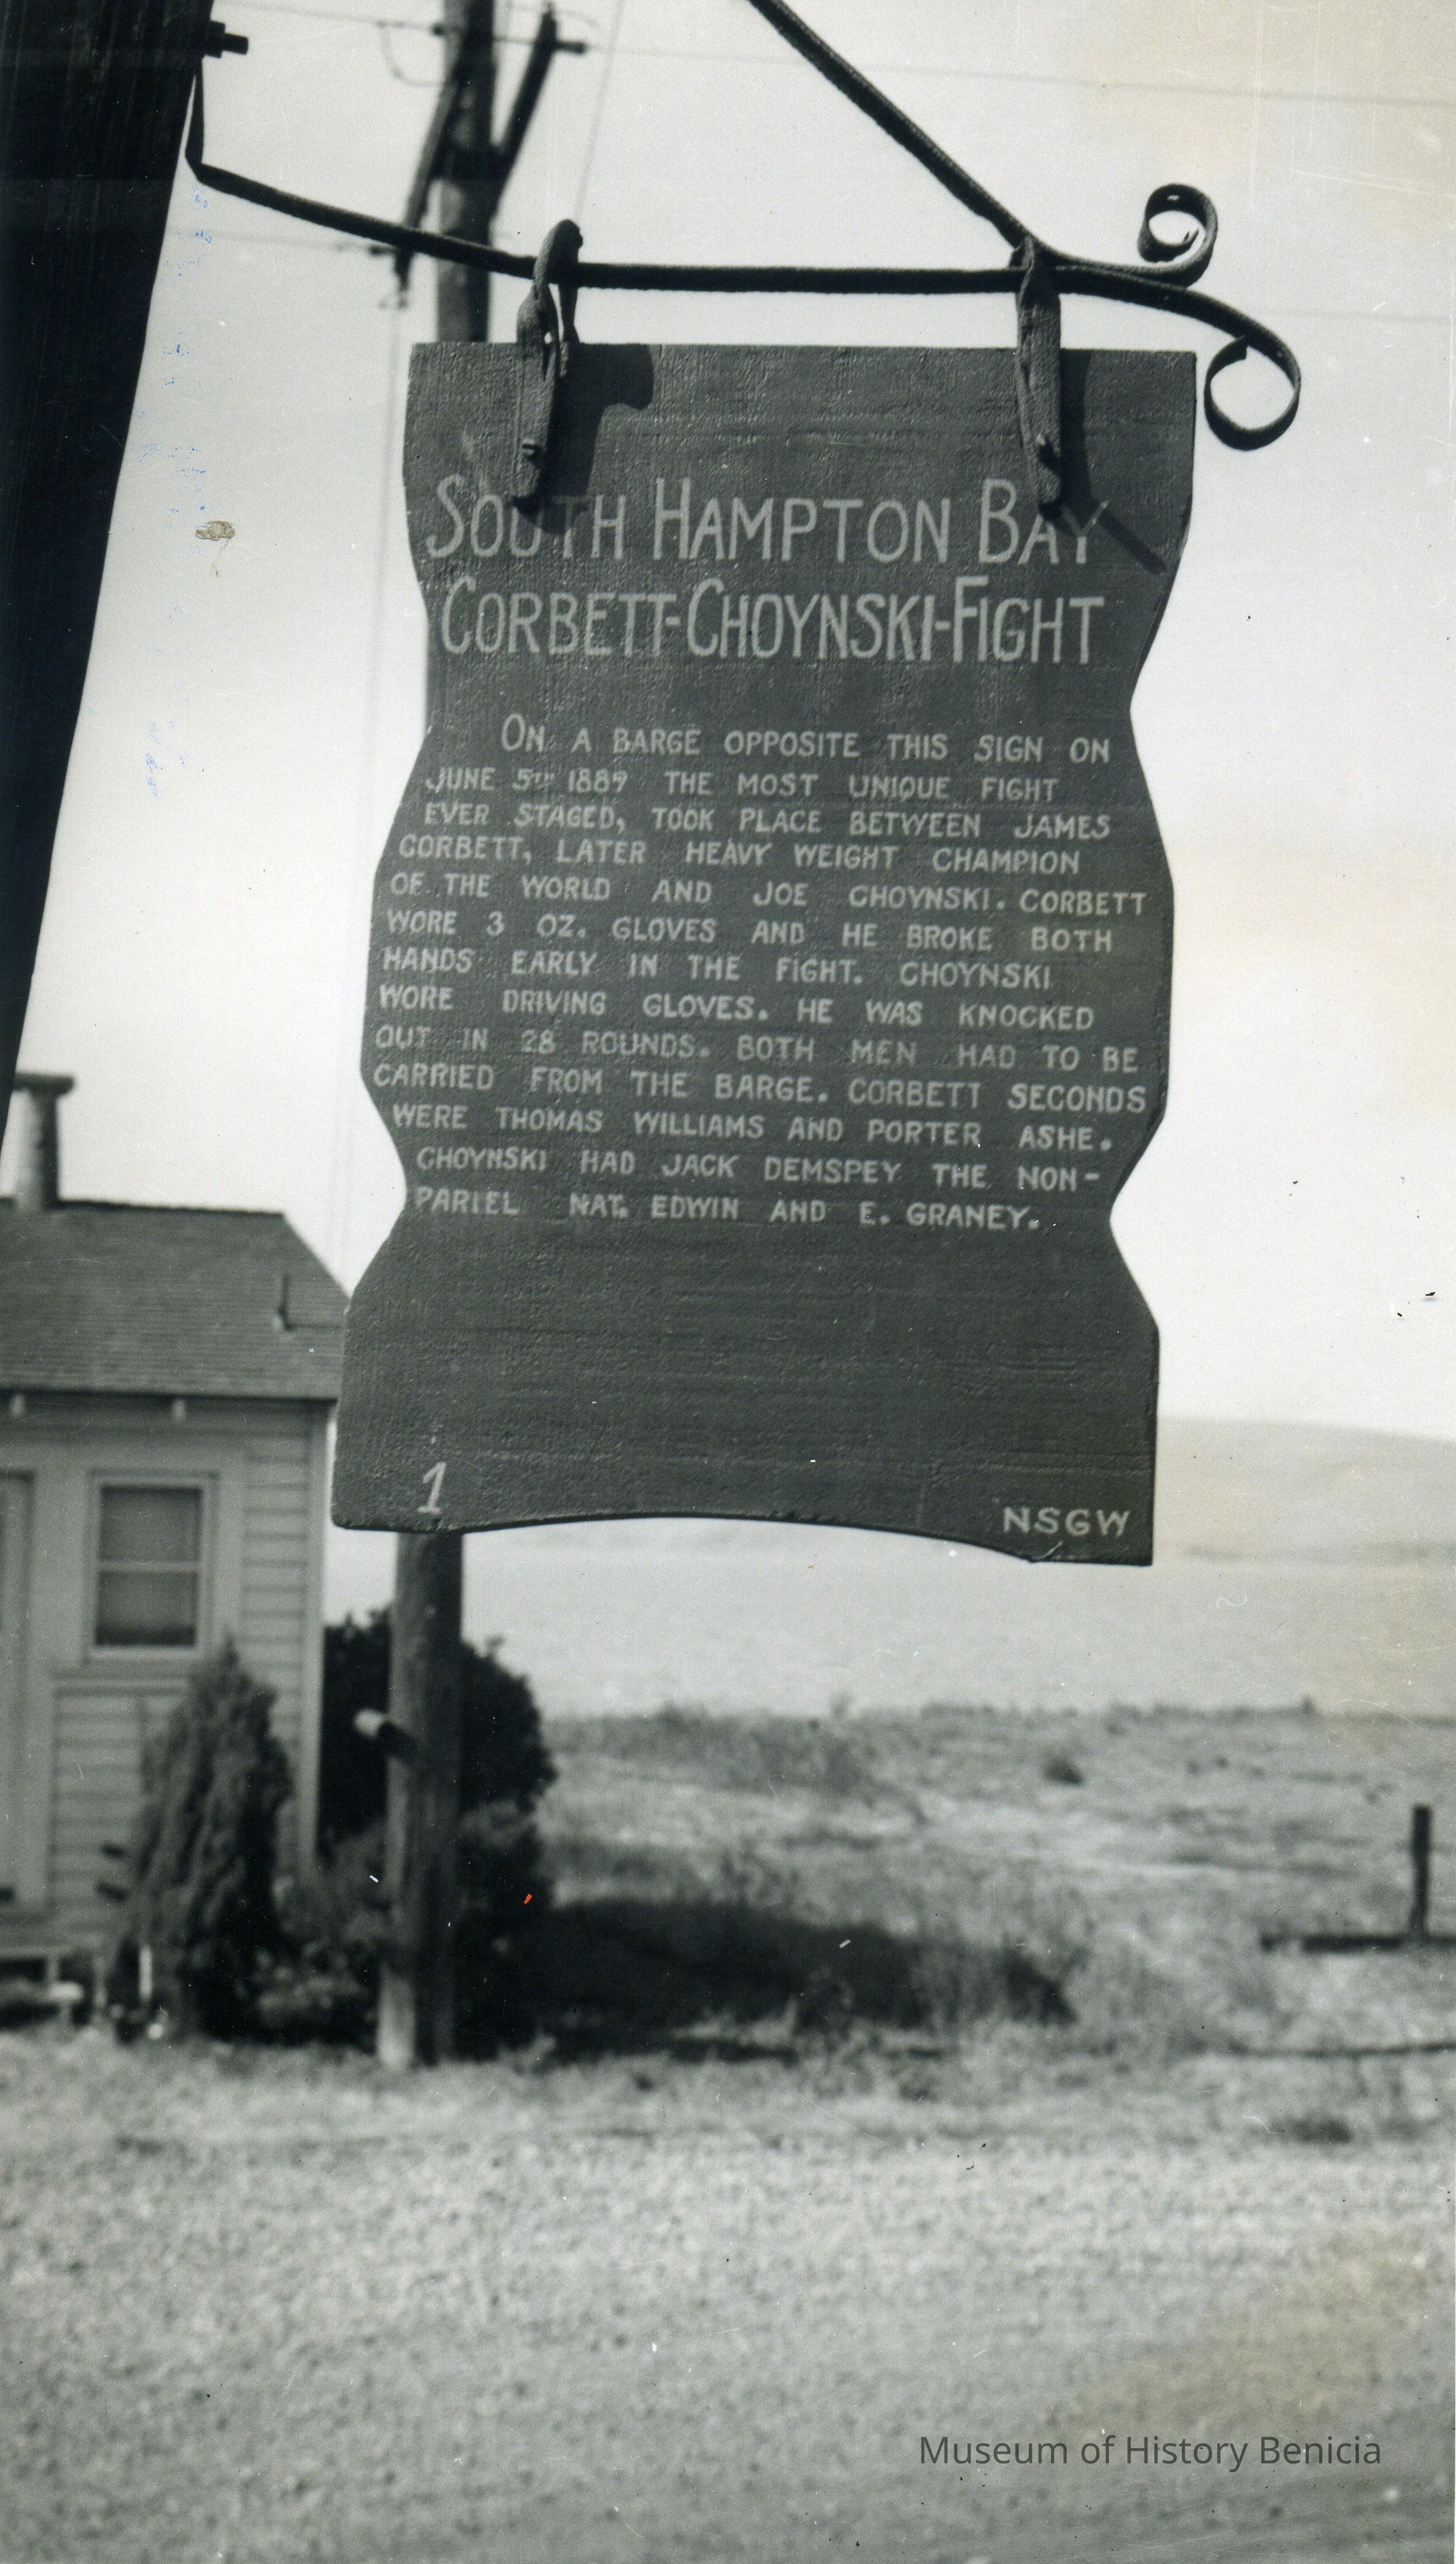 SOUTH HAMPTON BAY
CORBETT-CHOYNSKI-FIGHT
ON A BARGE OPPOSITE THIS SIGN ON
JUNE 5TH 1889 THE MOST UNIQUE FIGHT
EVER STAGED, TOOK PLACE BETWEEN JAMES
CORBETT, LATER HEAVY WEIGHT CHAMPION
OF THE WORLD AND JOE CHOYNSKI. CORBETT
WORE 3 OZ. GLOVES AND HE BROKE BOTH
HANDS EARLY IN THE FIGHT. CHOYNSKI
WORE DRIVING GLOVES. HE WAS KNOCKED
OUT IN 28 ROUNDS. BOTH MEN HAD TO BE
CARRIED FROM THE BARGE. CORBETT SECONDS
WERE THOMAS WILLIAMS AND PORTER ASHE.
CHOYNSKI HAD JACK DEMSPEY THE NON-
PARIEL NAT. EDWIN AND E. GRANEY.
1
NSGW
Museum of History Benicia